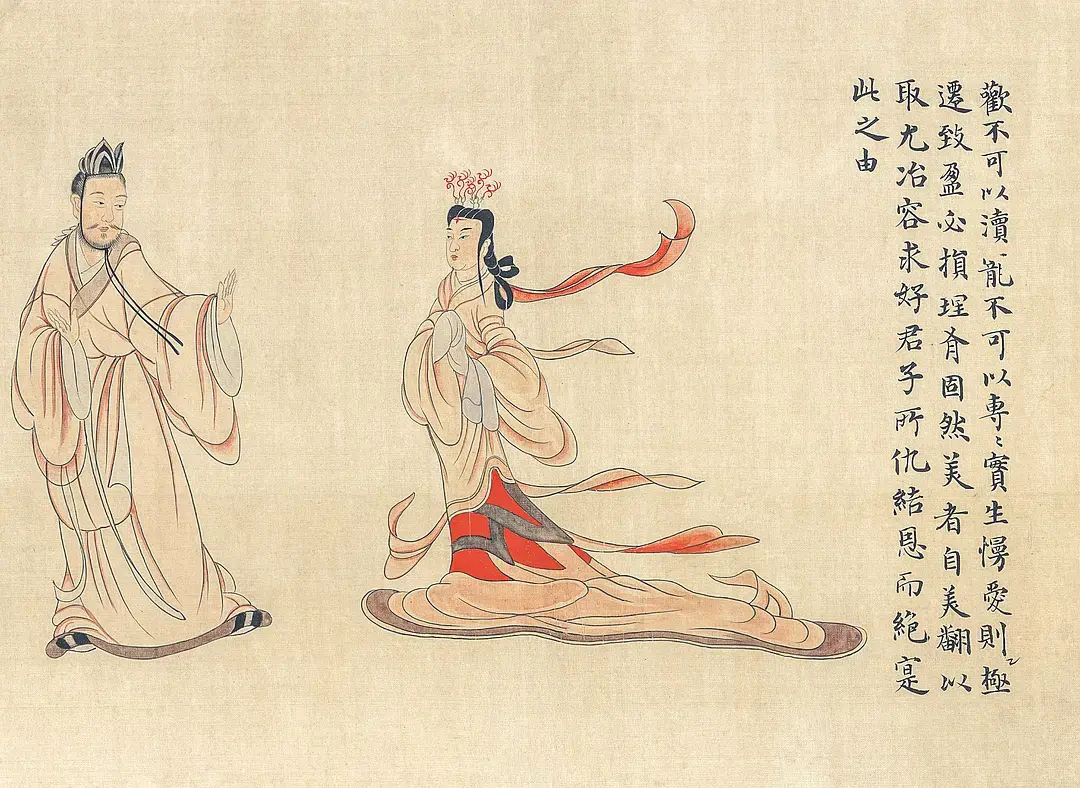 歡不可以瀆寵不可以專〻實生慢愛則〻極
遷致盈必損理有固然美者自美翩以
取尤冶容求好君子所仇結恩而絕寔
此之由